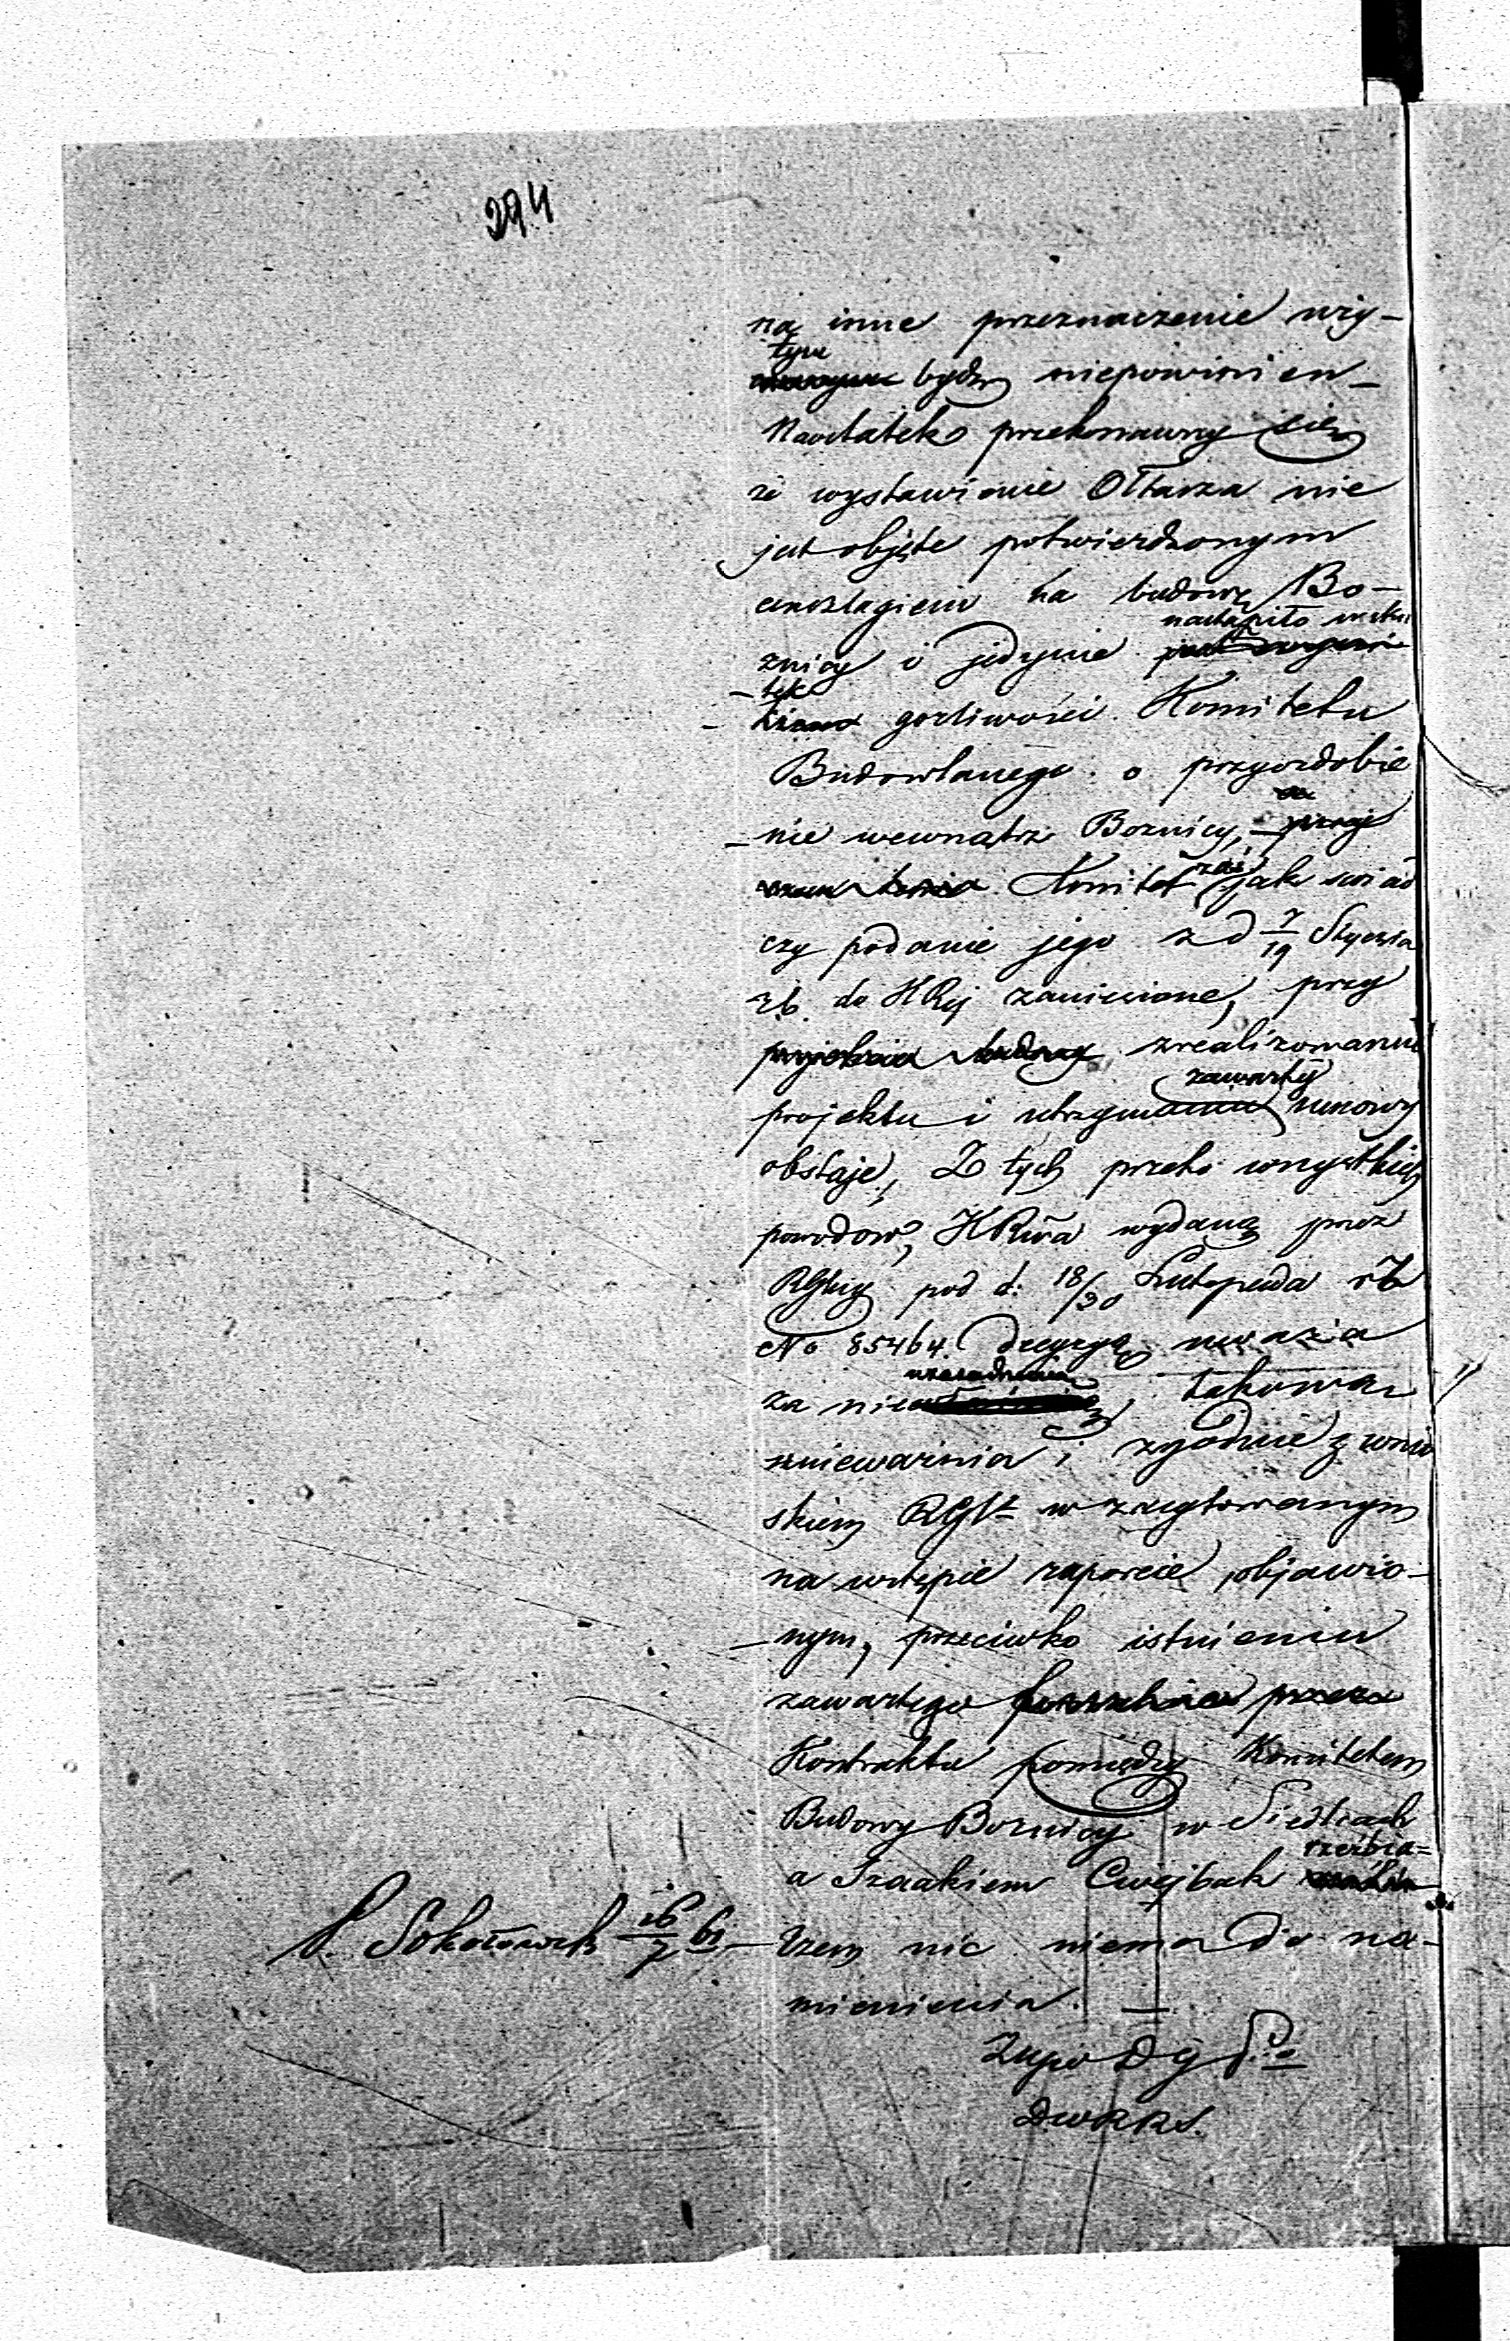 294
na inne przeznaczenie uży-
tym
bydź niepowinien
Naostatek przekonawszy się
że wystawienie Ołtarza nie
jest objęte potwierdzonym
anszlagiem na budowę Bo-
nastąpiło wsku
żnicy i jedynie
-tek
gorliwości Komitetu
Budowlanego o przyozdobie
-nie wewnątrz Bożnicy,
Komitet zaś jak świad
czy podanie jego z d 7/19 Stycznia
rb. do KRej zaniesione, przy
zrealizowaniu
projektu i utrzymaniu zawartej umowy
obstaje, Z tych przeto wszystkich
powodów, KRwa wydaną przez
RGlny pod d: 18/30 Listopada rz
No 85464 decyzyą uważa
za nieuzasadnioną, takową
unieważnia i zgodnie z wnio
skiem RGlo w zacytowanym
na wstępie raporcie objawio-
-nym, przeciwko istnieniu
zawartego przez
Kontraktu pomiędzy Komitetem
Budowy Bożnicy w Siedlcach
a Izaakiem Cwejbak rzeźbia=
S. Sokołowski 16/7 61
-rzem nic niema do na-
mienienia. —
Zupo D G S
DWRRS.